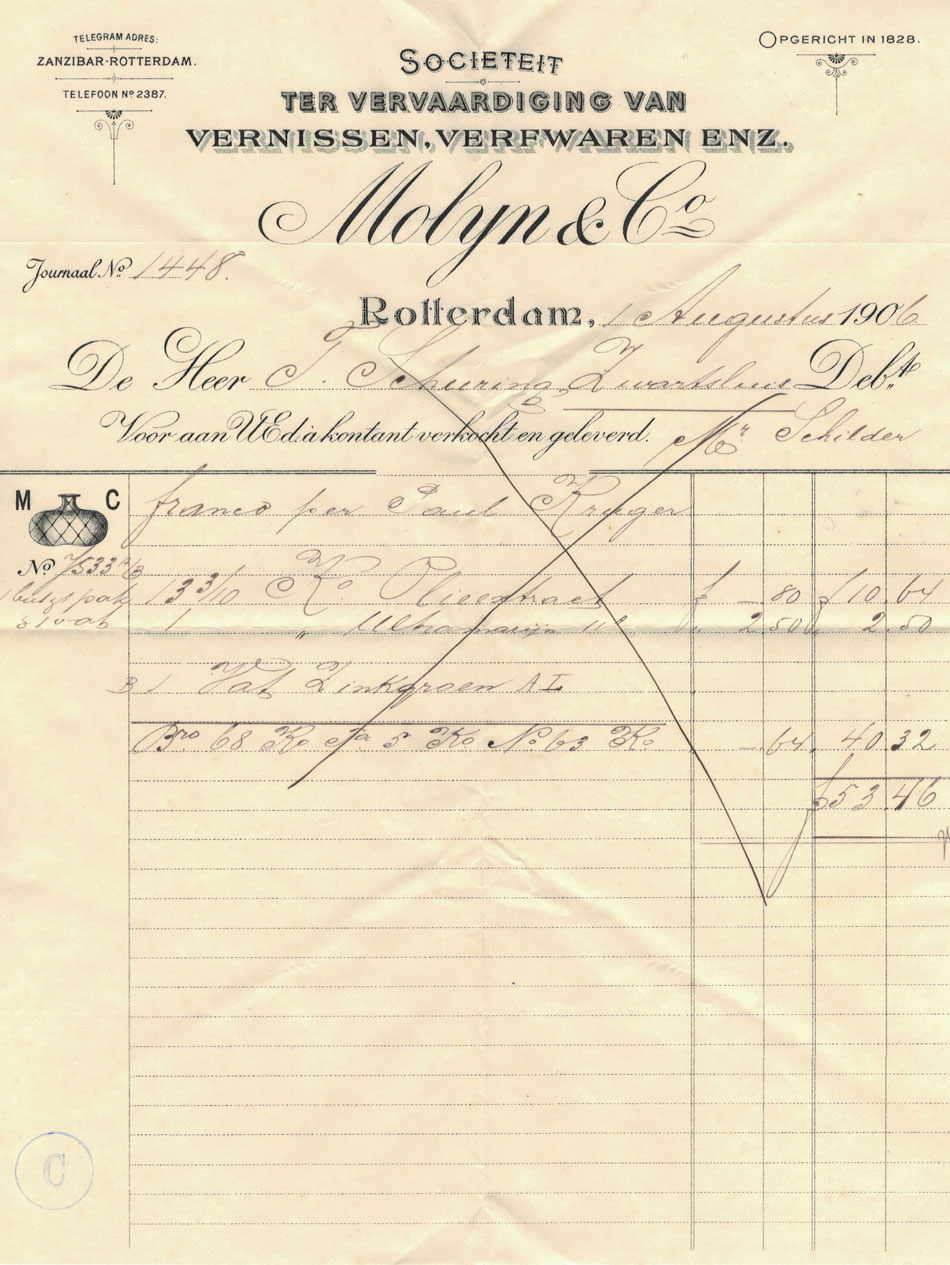 TELEGRAM ADRES:
ZANZIBAR-ROTTERDAM.
TELEFOON No 2387.
OPGERICHT IN 1828.
SOCIETEIT
TER VERVAARDIGING VAN
VERNISSEN, VERFWAREN ENZ.
Molyn & Co
Journaal No 1448.
Rotterdam, 1 Augustus 1906
De Heer T. Schuring Zwartsluis Debt.
Voor aan UEd. à kontant verkocht en geleverd. Mr Schilder
M C
franco per Paul Kruger
No 7533 A/B
13 3/10 Ko. Olieextract f —.80 f 10.64
1 " Ultramarijn 2.50 2.50
B 1 Vat Zinkgroen A I
Bro 68 Ko Ta 5 Ko No 63 Ko —.64 40.32
f 53.46
C